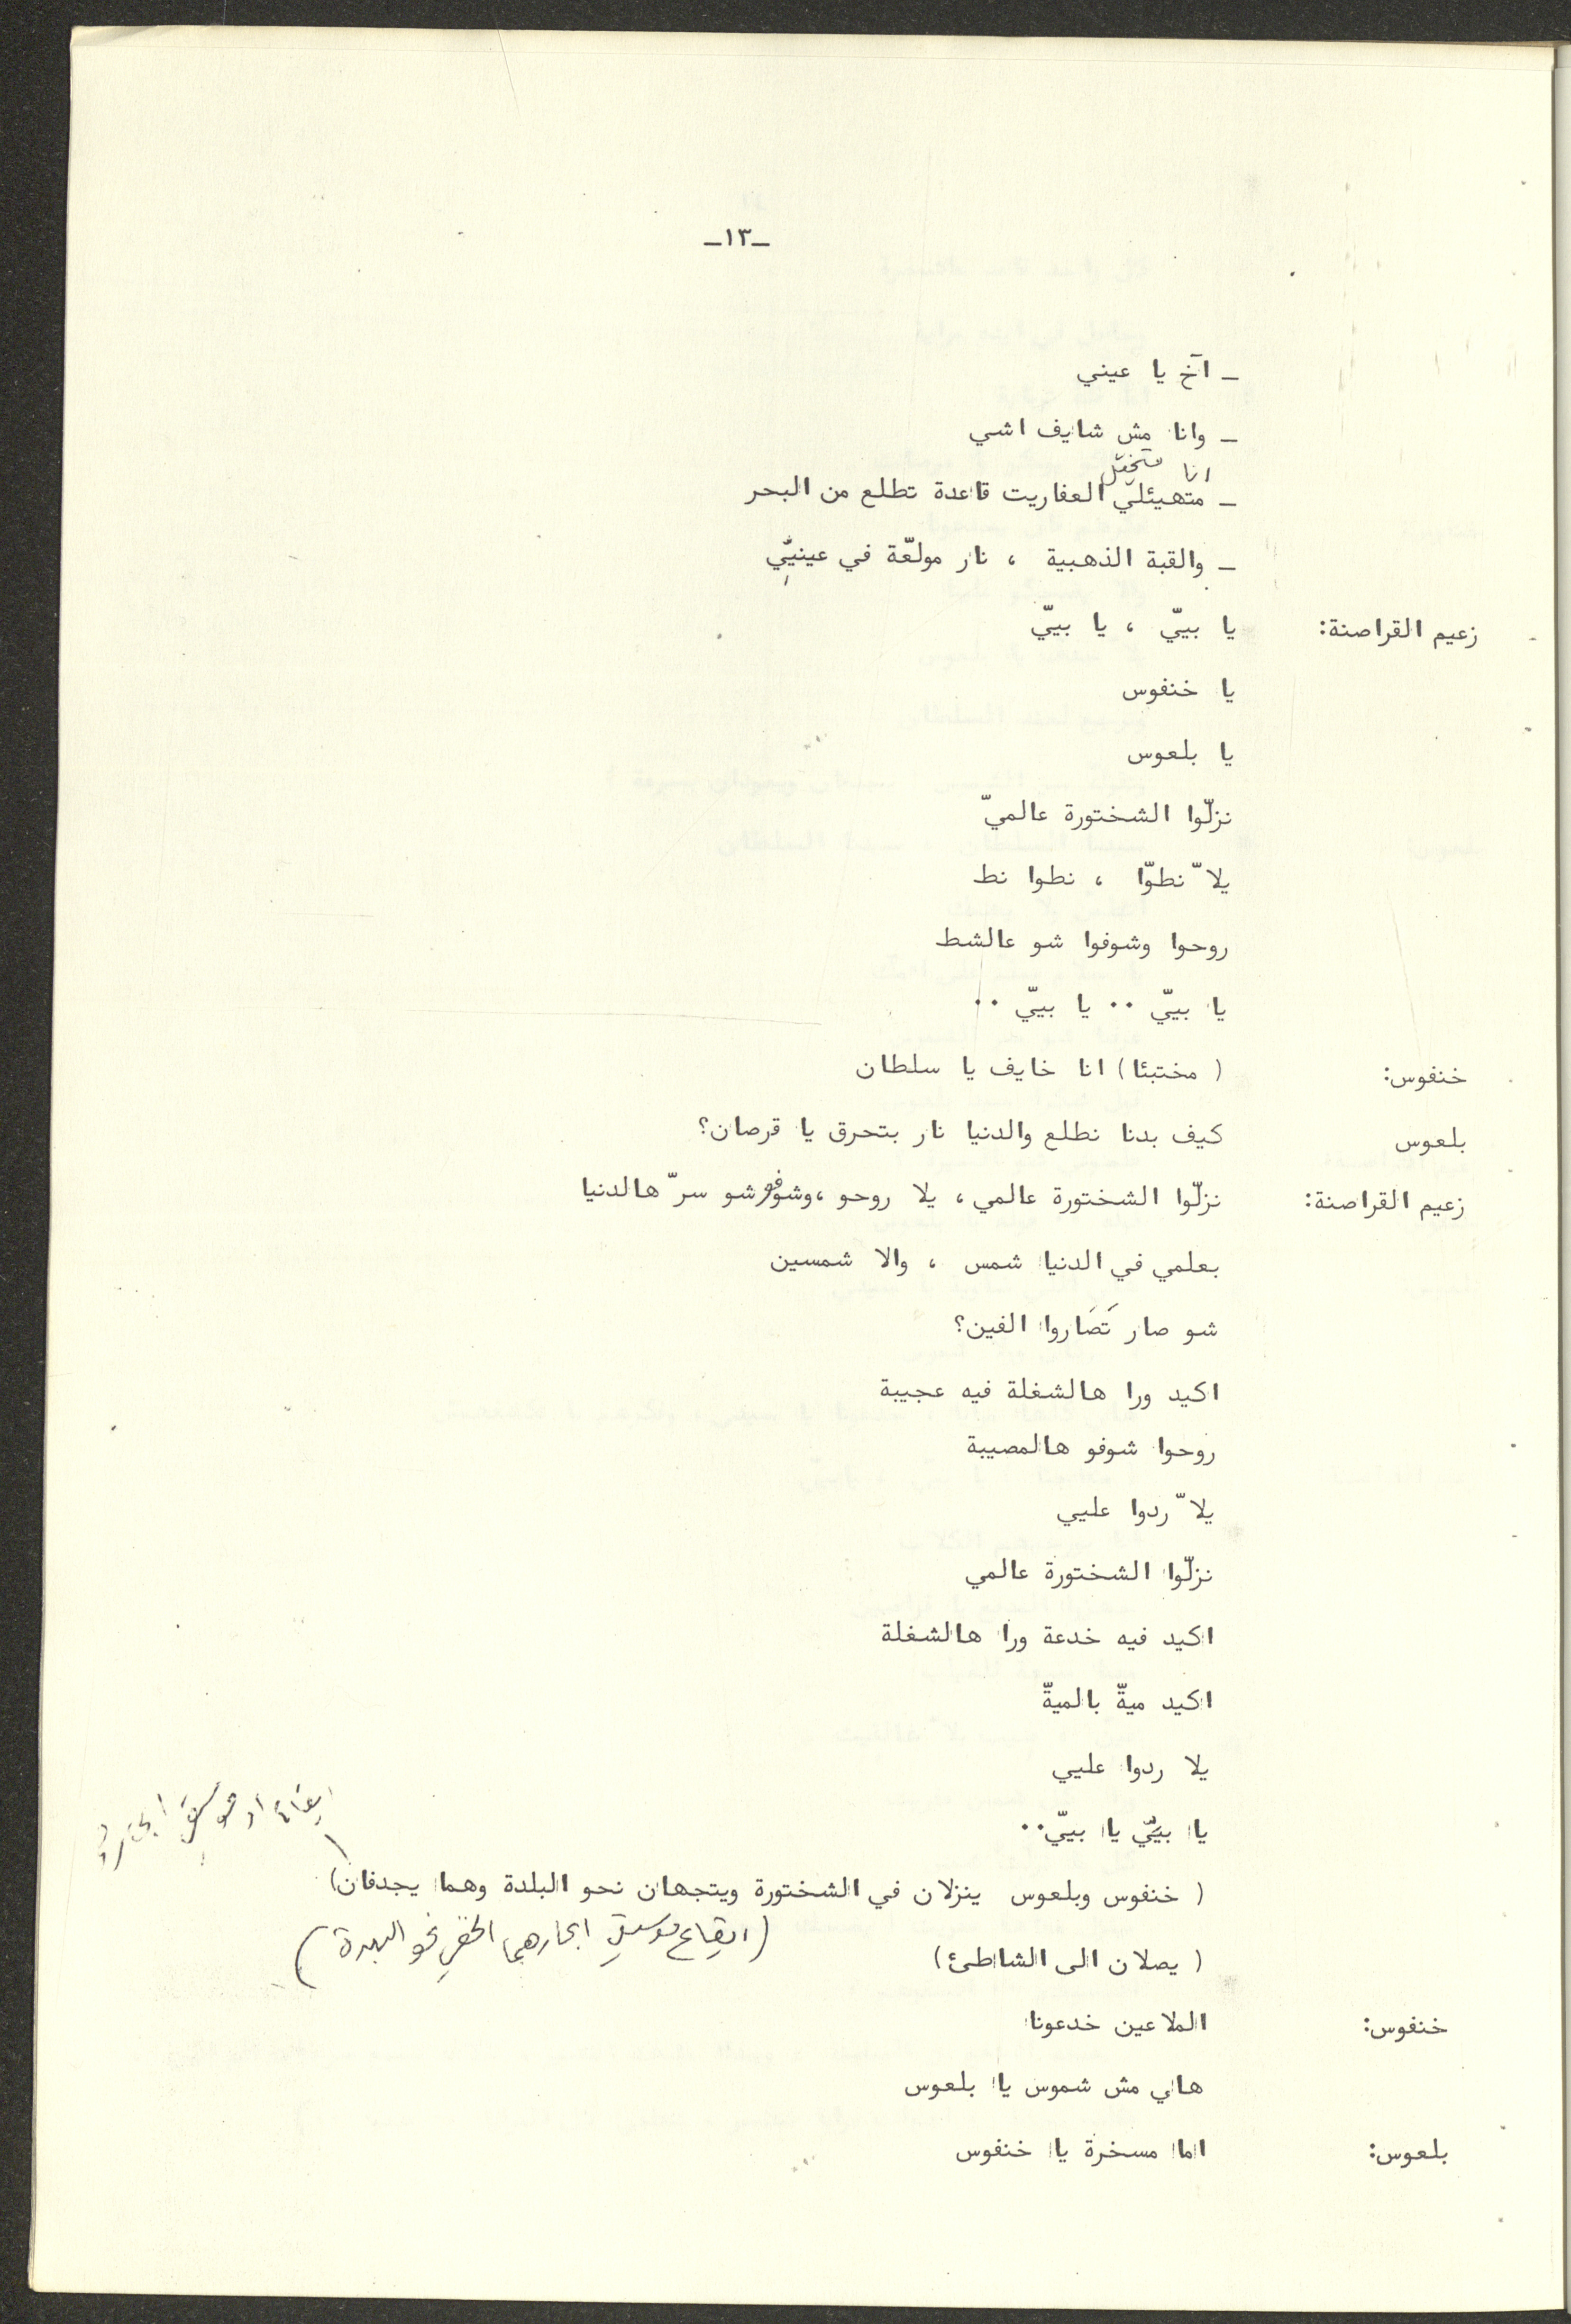 -١٣-
- آخ يا عيني
- وانا مش شايف اشي
انا متخيّل
- متهيئلي العفاريت قاعدة تطلع من البحر
- والقبة الذهبية ، نار مولعّة في عينييّ
زعيم القراصنة: يا بييّ ، يا بييّ
يا خنفوس
يا بلعوس
نزلّوا الشختورة عالميّ
يلاّ نطوّا ، نطوا نط
روحوا وشوفوا شو عالشط
يا بييّ ٠٠ يا بييّ ٠٠
خنفوس: ( مختبئا) انا خايف يا سلطان
بلعوس كيف بدنا نطلع والدنيا نار بتحرق يا قرصان؟
زعيم القراصنة: نزلّوا الشختورة عالمي، يلا روحو ،وشوفو شو سرّ هالدنيا
بعلمي في الدنيا شمس ، والا شمسين
شو صار تَصَاروا الفين؟
اكيد ورا هالشغلة فيه عجيبة
روحوا شوفو هالمصيبة
يلاّ ردوا عليي
نزلّوا الشختورة عالمي
اكيد فيه خدعة ورا هالشغلة
اكيد ميةّ بالميةّ
يلا ردوا عليي
يا بييّ يا بييّ٠٠
ايقاع او موسيقى
( خنفوس وبلعوس ينزلان في الشختورة ويتجهان نحو البلدة وهما يجدفان)
(ايقاع موسيقي ابحارهما الخفي نحو البلدة)
( يصلان الى الشاطئ)
خنفوس: الملاعين خدعونا
هاي مش شموس يا بلعوس
بلعوس: اما مسخرة يا خنفوس